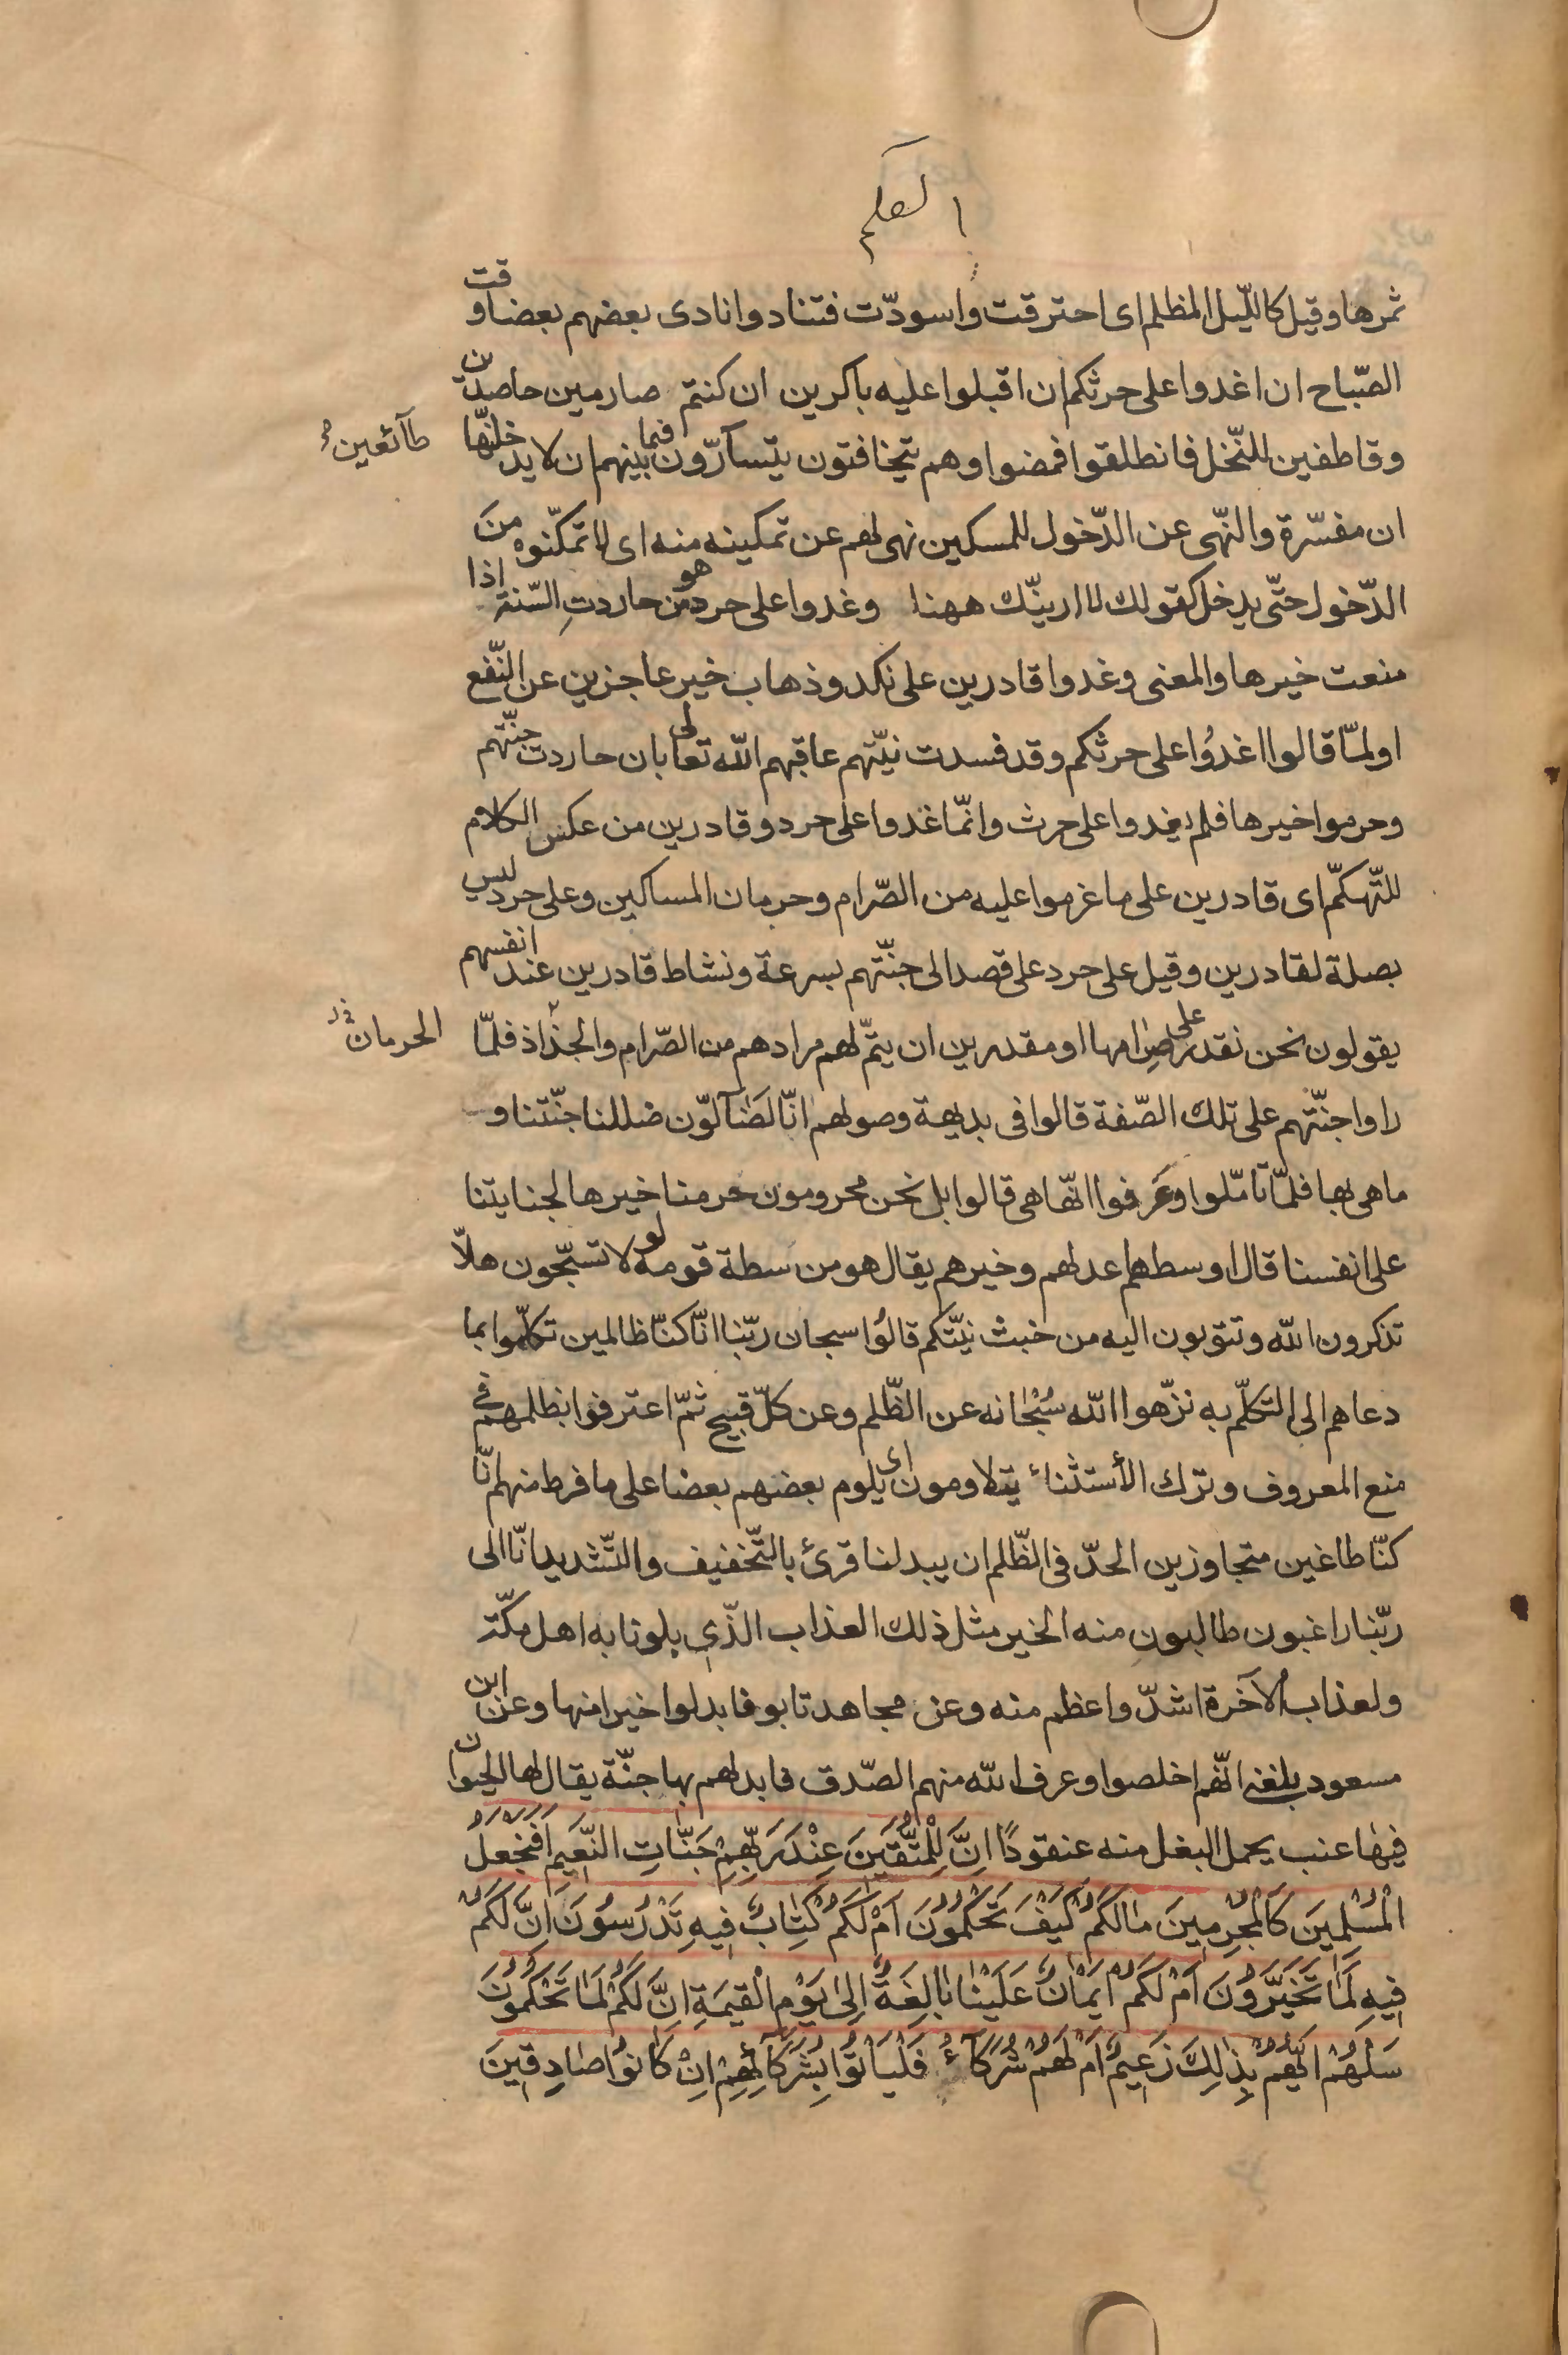 القلم
ثمرها وقيل كاللّيل المظلم اى احترقت واسودّت فتنادوا نادى بعضهم بعضا وقت
الصّباح ان اغدوا على حرثكم ان اقبلوا عليه باكرين ان كنتم صارمين حاصدين
وقاطفين للنّخل فانطلقوا فمضوا وهم يتخافتون يتسآرّون فيما بينهم ان لا يدخلنّها
طآئعين
ان مفسّرة والنّهى عن الدّخول للمسكين نهى لهم عن تمكينه منه اى لا تمكّنوه من
الدّخول حتّى يدخل كقولك لا ارينّك ههنا وغدوا على حرد هو من حاردتِ السّنة اذا
منعت خيرها والمعنى وغدوا قادرين على نكد وذهاب خير عاجزين عن النّفع
او لمّا قالوا اغدُوا على حرثكم وقد فسدت نيّتهم عاقبهم اللّه تعالى بان حاردت جنّتهم
وحرموا خيرها فلم يغدوا على حرث وانّما غدوا على حرد وقادرين من عكس الكلام
للتّهكمّ اى قادرين على ما غرموا عليه من الصّرام وحرمان المساكين وعلى حرد ليس
بصلة لقادرين وقيل على حرد على قصد الى جنّتهم بسرعة ونشاط قادرين عند انفسهم
يقولون نحن نقدر على صِرامها او مقدرين ان يتمّ لهم مرادهم من الصّرام والجذاذ فلمّا
الحرمان
راوا جنّتهم على تلك الصّفة قالوا فى بديهة وصولهم انّا لَضَآلوّن ضللنا جنّتنا و
ما هى بها فلمّا تامّلوا وعَرفوا انّها هى قالوا بل نحن محرومون حرمنا خيرها لجنايتنا
على انفسنا قال اوسطهم اعدلهم وخيرهم يقال هو من سطة قومه لو لا تسبّحون هلاّ
تذكرون اللّه وتتوبون اليه من خبث نيّتكم قالُوا سبحان ربّنا انّا كنّا ظالمين تكلّموا بما
دعاهم الى التكلّم به نزّهوا اللّه سُبْحانه عن الظّلم وعن كلّ قبيح ثمّ اعترفوا بظلمهم فى
منع المعروف وترك الأستثناء يتلاومون اى يلوم بعضهم بعضا على ما فرط منهم انّا
كنّا طاغين متجاوزين الحدّ فى الظّلم ان يبدلنا قرئ بالتّخفيف والتّشديد انّا الى
ربّنا راغبون طالبون منه الخير مثل ذلك العذاب الذّى بلونا به اهل مكّة
ولعذاب الآخرة اشدّ واعظم منه وعن مجاهد تابو فابدلوا خيرا منها وعن ابن
مسعود بلغنى انّهم اخلصوا وعرف اللّه منهم الصّدق فابدلهم بها جنّة يقال لها الحيوان
فيها عنب يحمل البغل منه عنقودًا اِنَّ لِلْمُتَّقينَ عِنْدَ رَبِّهِمْ جَنّاتِ النَّعيمِ اَفَنَجْعَلُ
الْمُسْلِمينَ كَالْمُجْرِمينَ مالَكُمْ كَيْفَ تَحْكُمُونَ اَمْ لَكُمْ كِتابٌ فيهِ تَدْرُسُونَ اِنَّ لَكُمْ
فيهِ لَمَا تَخَيَّرُونَ اَمْ لَكُمْ اَيْمانٌ عَلَيْنا بالِغَةٌ اِلى يَوْمِ الْقيمَةِ اِنَّ لَكُمْ لَمَا تَحْكُمُونَ
سَلْهُمْ اَيُّهُمْ بِذلِكَ زَعيمٌ اَمْ لَهُمْ شُرَكآءُ فَلْيَاْتُوا بِشُرَكآئِهِمْ اِنْ كانُوا صادِقينَ